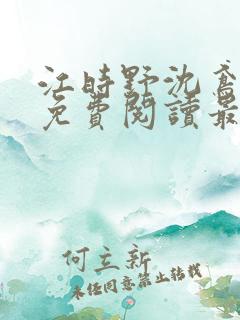 江時野沈鳶
免費閱讀最
何立新
未經同意禁止轉載